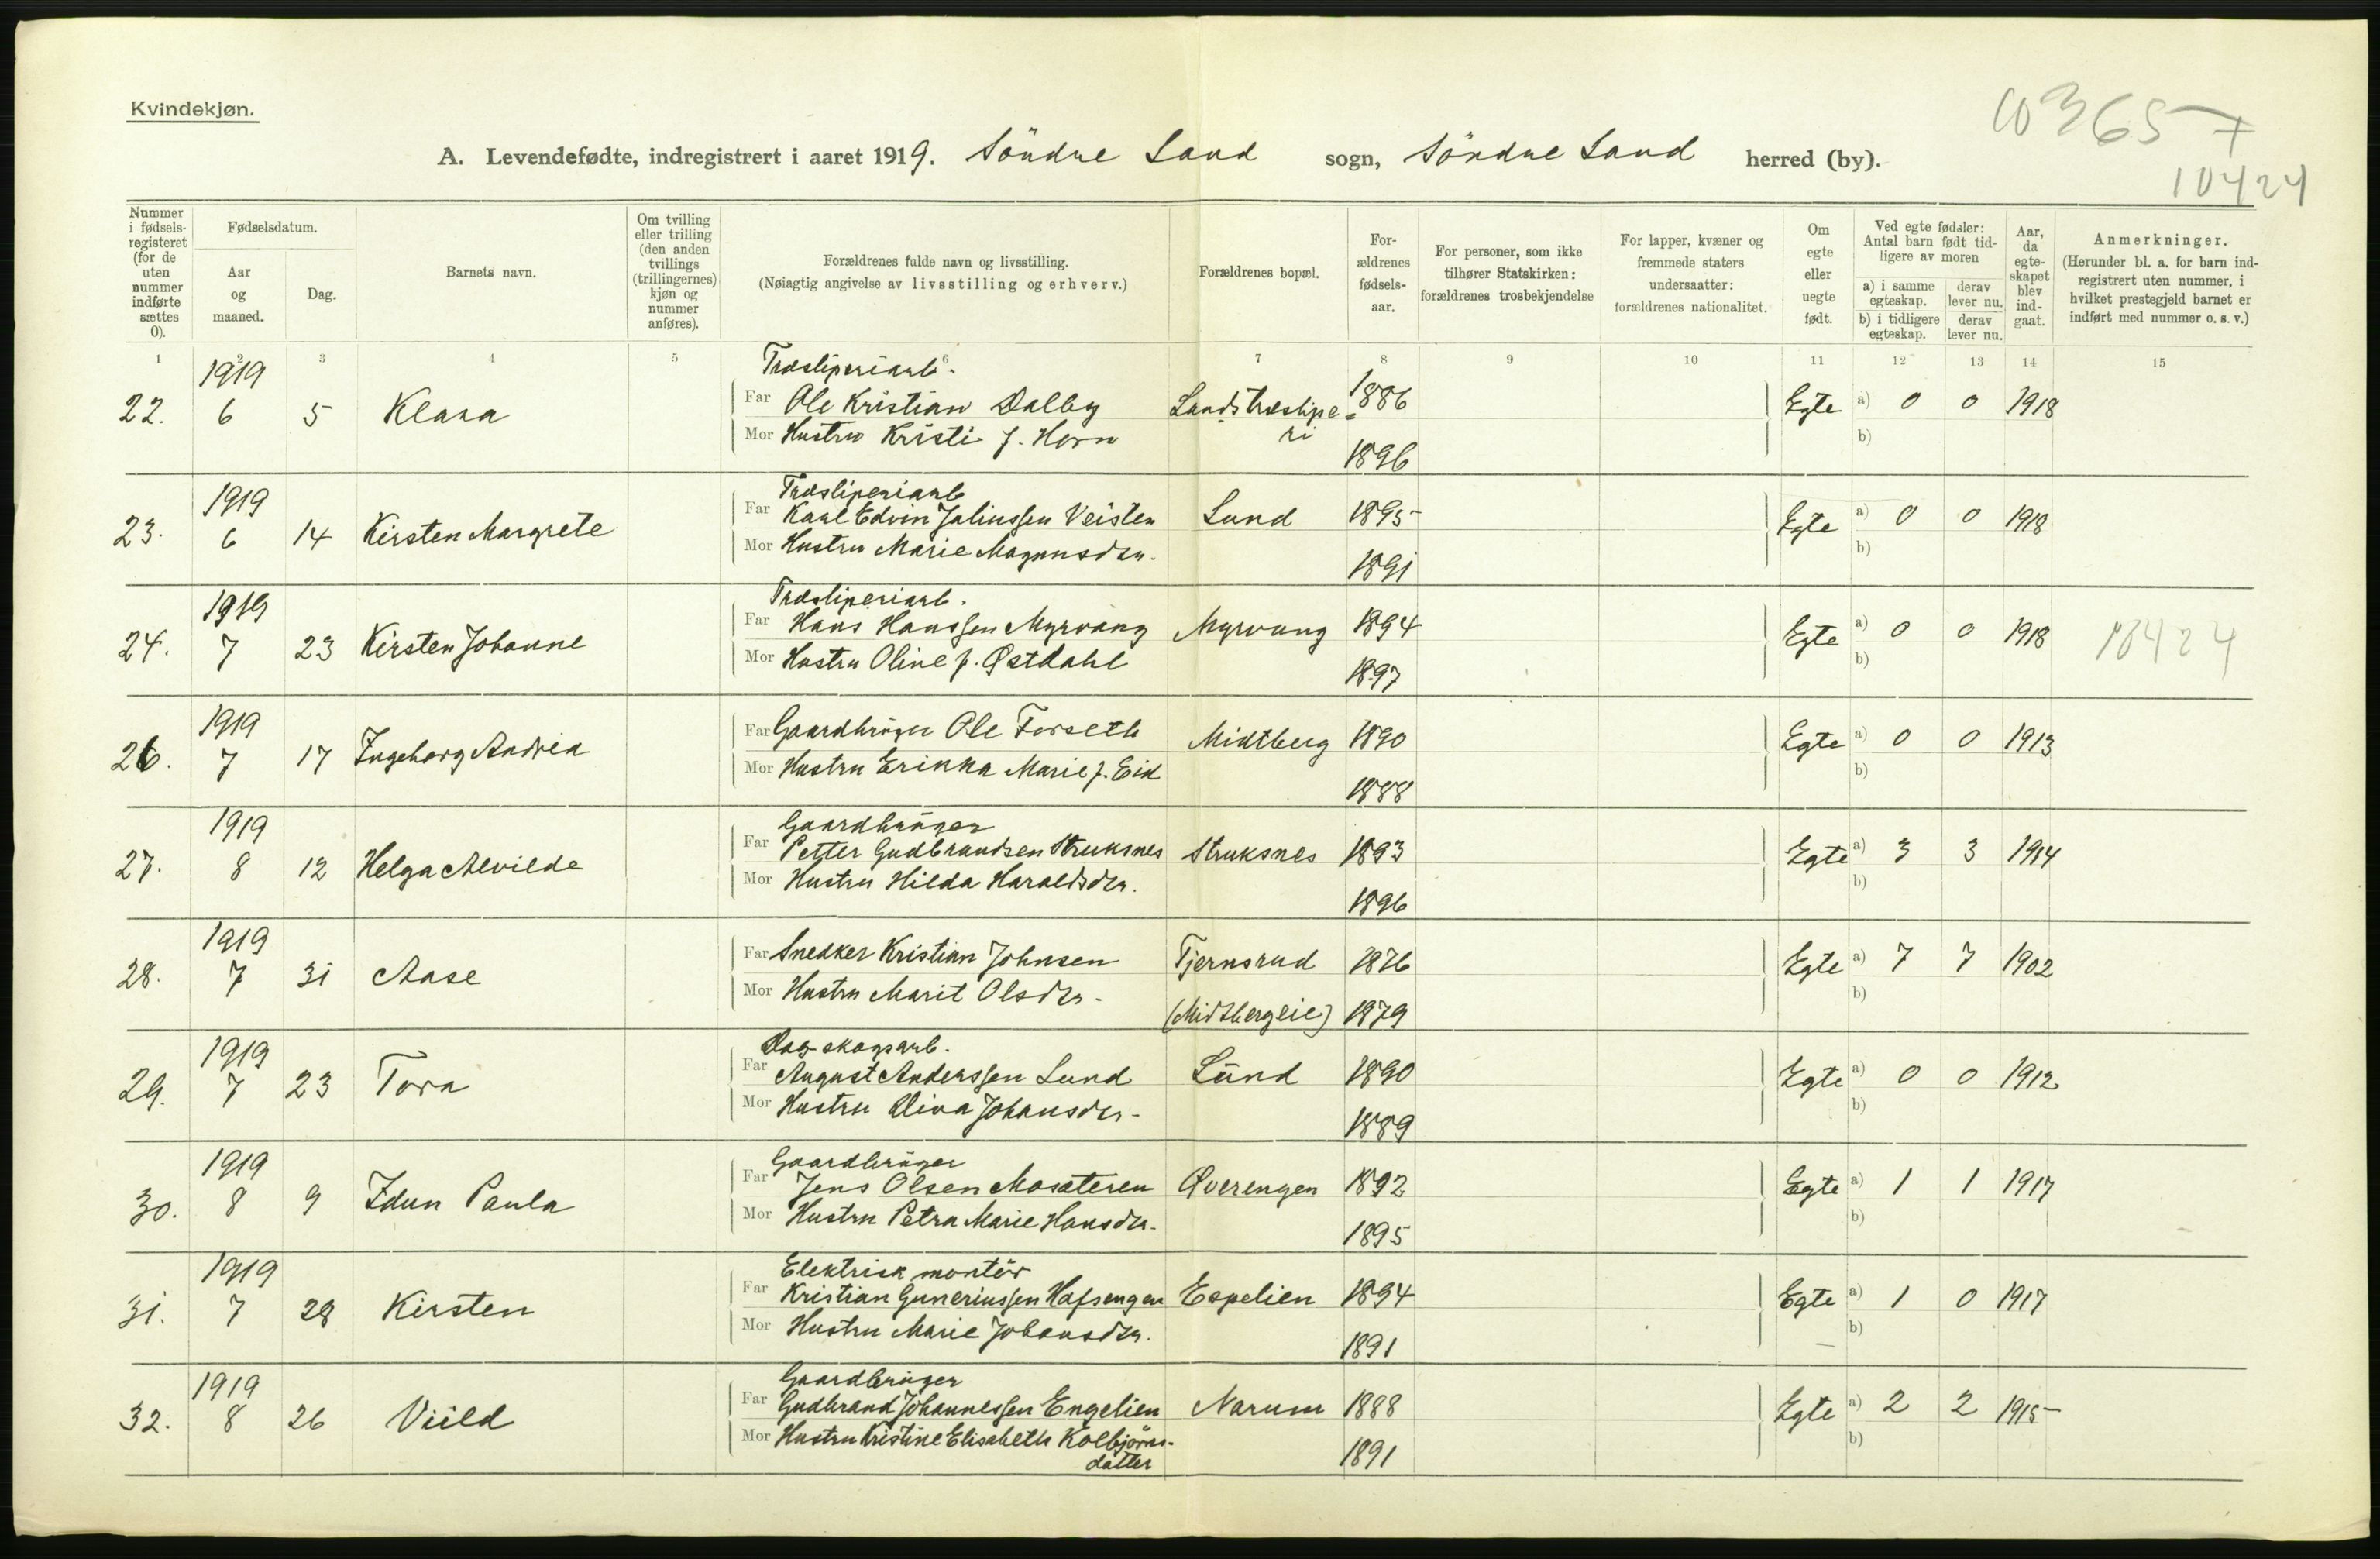 Kvindekjøn.
A. Levendefødte, indregistrert i aaret 1919. Söndre Land sogn, Söndre Land herred (by).
10365 +
10424
Nummer i fødsels-registeret (for de uten nummer indførte sættes 0).
Fødselsdatum.
Aar og maaned.
Dag.
Barnets navn.
Om tvilling eller trilling (den anden tvillings (trillingernes) kjøn og nummer anføres).
Forældrenes fulde navn og livsstilling.
(Nøiagtig angivelse av livsstilling og erhverv.)
Forældrenes bopæl.
For-ældrenes fødsels-aar.
For personer, som ikke tilhører Statskirken: forældrenes trosbekjendelse
For lapper, kvæner og fremmede staters undersaatter: forældrenes nationalitet.
Om egte eller uegte født.
Ved egte fødsler: Antal barn født tid-ligere av moren
a) i samme egteskap.
derav lever nu.
b) i tidligere egteskap.
derav lever nu.
Aar, da egte-skapet blev ind-gaat.
Anmerkninger.
(Herunder bl. a. for barn ind-registrert uten nummer, i hvilket prestegjeld barnet er indført med nummer o. s. v.)
1 2 3 4 5 6 7 8 9 10 11 12 13 14 15
1919 Træsliperiarb.
22. 6 5 Klara Far Ole Kristian Dalby Landstræslipe- 1886 Egte a) 0 0 1918
Mor Hustru Kristi f. Horn ri 1896 b)
1919 Træsliperiarb
23. 6 14 Kirsten Margrete Far Karl Edvin Juliussen Veisten Lund 1895 Egte a) 0 0 1918
Mor Hustru Marie Magnusdtr. 1891 b)
1919 Træsliperiarb.
24. 7 23 Kirsten Johanne Far Hans Hanssen Myrvang Myrvang 1894 Egte a) 0 0 1918 10424
Mor Hustru Oline f. Østdahl 1897 b)
1919
26. 7 17 Ingeborg Andrea Far Gaardbruger Ole Forseth Midtberg 1890 Egte a) 0 0 1913
Mor Hustru Erikka Marie f. Eid 1888 b)
1919 Gaardbruger
27. 8 12 Helga Alvilde Far Petter Gudbrandsen Struksnes Struksnes 1893 Egte a) 3 3 1914
Mor Hustru Hilda Haraldsdtr. 1896 b)
1919
28. 7 31 Aase Far Snedker Kristian Johnsen Tjernsrud 1876 Egte a) 7 7 1902
Mor Hustru Marit Olsdtr. (Midtbergeie) 1879 b)
1919 Dag- skogsarb.
29. 7 23 Tora Far August Anderssen Lund Lund 1890 Egte a) 0 0 1912
Mor Hustru Olina Johansdtr. 1889 b)
1919 Gaardbruger
30. 8 9 Idun Paula Far Jens Olsen Mosæteren Øverengen 1892 Egte a) 1 1 1917
Mor Hustru Petra Marie Hansdtr. 1895 b)
1919 Elektrisk montör
31. 7 28 Kirsten Far Kristian Guneriussen Hafsengen Espelien 1894 Egte a) 1 0 1917
Mor Hustru Marie Johansdtr. 1891 b)
1919 Gaardbruger
32. 8 26 Viild Far Gudbrand Johannessen Engelien Narum 1888 Egte a) 2 2 1915
Mor Hustru Kristine Elisabeth Kolbjörns- 1891 b)
datter